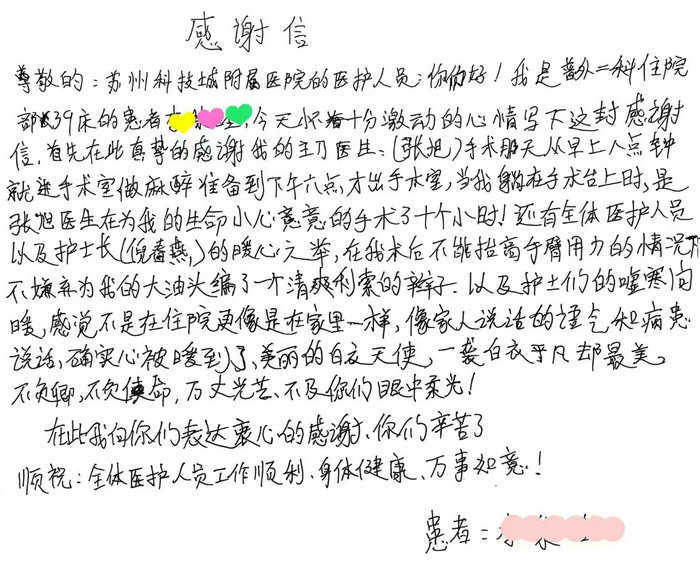 感谢信
尊敬的：苏州科技城附属医院的医护人员：你们好！我是普外二科住院
部39床的患者 今天怀着十分激动的心情写下这封感谢
信，首先在此真挚的感谢我的主刀医生：（张旭）手术那天从早上八点钟
就进手术室做麻醉准备到下午六点才出手术室，当我躺在手术台上时，是
张旭医生在为我的生命小心意意的手术了十个小时！还有全体医护人员
以及护士长（倪春燕）的暖心之举，在我术后不能抬高手臂用力的情况下
不嫌弃为我的大油头编了一个清爽利索的辫子．以及护士们的嘘寒问
暖，感觉不是在住院更像是在家里一样，像家人说话的语气和病患
说话，确实心被暖到了，美丽的白衣天使，一袭白衣平凡却最美。
不负卿，不负使命，万丈光芒、不及你们眼中柔光！
在此我向你们表达衷心的感谢、你们辛苦了
顺祝：全体医护人员工作顺利、身体健康、万事如意！
患者：